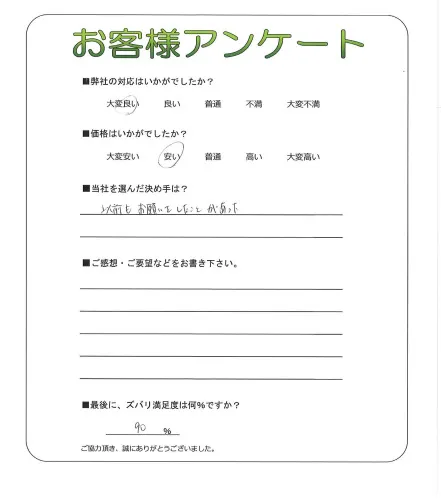 お客様アンケート
■弊社の対応はいかがでしたか？
大変良い 良い 普通 不満 大変不満
■価格はいかがでしたか？
大変安い 安い 普通 高い 大変高い
■当社を選んだ決め手は？
以前もお願いをしたことがあった
■ご感想・ご要望などをお書き下さい。
■最後に、ズバリ満足度は何％ですか？
90 ％
ご協力頂き、誠にありがとうございました。